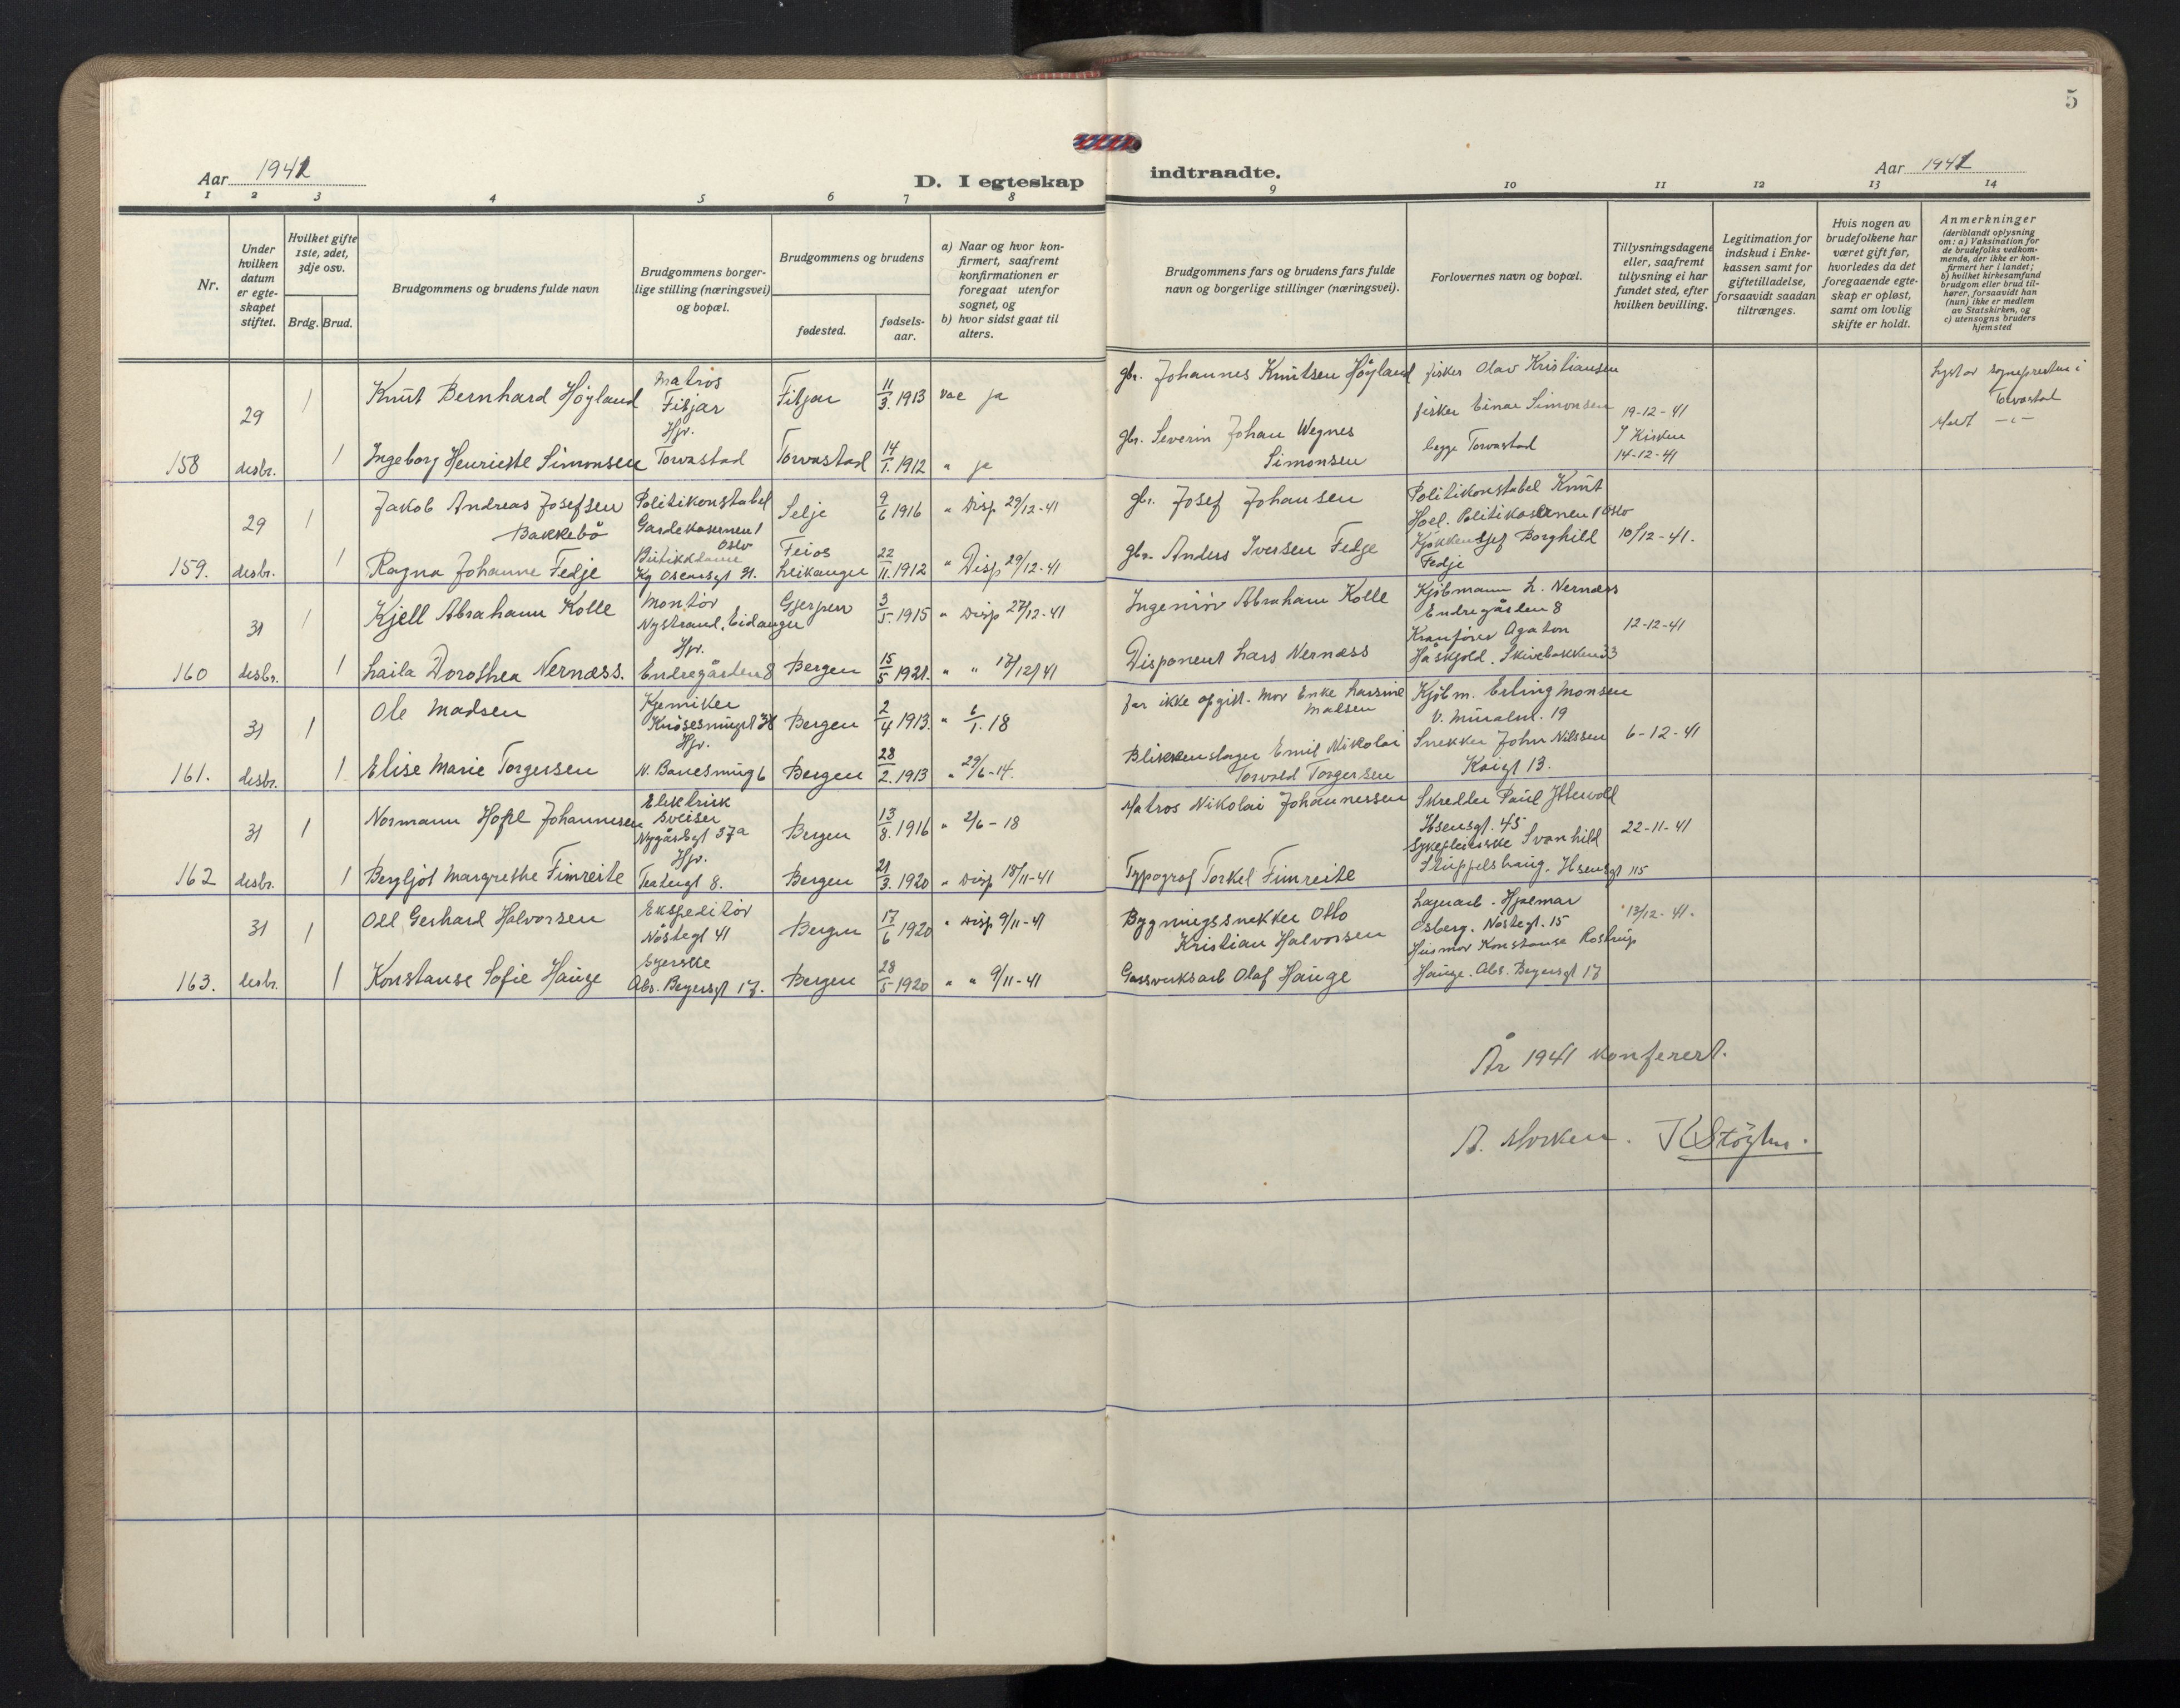 5
Aar 1941
D. I egteskap indtraadte.
Aar 1941
1 2 3 4 5 6 7 8 9 10 11 12 13 14
Nr.
Under hvilken datum er egte-skapet stiftet.
Hvilket gifte 1ste, 2det, 3dje osv.
Brdg. Brud.
Brudgommens og brudens fulde navn
Brudgommens borger-lige stilling (næringsvei) og bopæl.
Brudgommens og brudens
fødested.
fødsels-aar.
a) Naar og hvor kon-firmert, saafremt konfirmationen er foregaat utenfor sognet, og
b) hvor sidst gaat til alters.
Brudgommens fars og brudens fars fulde navn og borgerlige stillinger (næringsvei).
Forlovernes navn og bopæl.
Tillysningsdagene eller, saafremt tillysning ei har fundet sted, efter hvilken bevilling.
Legitimation for indskud i Enke-kassen samt for giftetilladelse, forsaavidt saadan tiltrænges.
Hvis nogen av brudefolkene har været gift før, hvorledes da det foregaaende egte-skap er opløst, samt om lovlig skifte er holdt.
Anmerkninger (deriblandt oplysning om: a) Vaksination for de brudefolks vedkom-mende, der ikke er kon-firmert her i landet; b) hvilket kirkesamfund brudgom eller brud til-hører, forsaavidt han (hun) ikke er medlem av Statskirken, og c) utensogns bruders hjemsted
29 1 Knut Bernhard Høyland Matros Fitjar Fitjar 11/3 1913 vac ja gbr. Johannes Knutsen Høyland fisker Olav Kristiansen Lyst av sognepresten i Torvastad
158 desbr. 1 Ingeborg Henriette Simonsen Hjv. Torvastad Torvastad 14/1 1912 " ja gbr. Severin Johan Wegnes Simonsen fisker Einar Simonsen begge Torvastad 19-12-41 I Kirken 14-12-41
29 1 Jakob Andreas Josefsen Bakkebø Politikonstabel Gardekasernen 1 Oslo Selje 9/6 1916 " Disp 29/12-41 gbr. Josef Johansen Politikonstabel Knut Hoel. Politikasernen 1 Oslo
159. desbr. 1 Ragna Johanne Fedje Butikkdame Kg Osensgt 31. Feios Leikanger 22/11 1912 " Disp 29/12-41 gbr. Anders Iversen Fedje Kjøkkensjef Borghild Fedje 10/12-41.
31 1 Kjell Abraham Kolle Montør Nystrand, Eidanger Gjerpen 3/5 1915 " Disp 27/12-41 Ingeniør Abraham Kolle Kjøbmann L. Nernæss Endregården 8
160 desbr. 1 Laila Dorothea Nernæss. Hjv. Endregården 8 Bergen 15/5 1921. " " 17/12/41 Disponent Lars Nernæss Kranfører Agaton Håskjold. Skivebakken 33 12-12-41
31 1 Ole Madsen Kjemiker Knøsesmuget 38 Bergen 2/4 1913. " 6/1. 18 far ikke opgitt. Mor Enke Larsine Madsen Kjøbm. Erling Monsen V. Muralm. 19
161. desbr. 1 Elise Marie Torgersen Hjv. N. Banesmug 6 Bergen 28/2. 1913 " 29/6-14. Blikkenslager Emil Nikolai Torvald Torgersen Snekker John Nilssen Kaigt 13. 6-12-41
31 1 Normann Hope Johannesen Elektrisk sveiser Nygårdsgt 37a Bergen 13/8. 1916 " 2/6-18 Matros Nikolai Johannessen Skredder Paul Ytterdvoll Ibsensgt. 45
162 desbr. 1 Bergljot Margrethe Fimreite Hjv. Teatergt 8. Bergen 21/3. 1920 " Disp 18/11-41 Typograf Torkel Fimreite Sykepleierske Svanhild Stuppelshaug. Ibsensgt 115 22-11-41
31 1 Odd Gerhard Halvorsen Ekspeditør Nøstegt 41 Bergen 17/6 1920 " Disp 9/11-41 Bygningssnekker Otto Kristian Halvorsen Lagerarb. Hjalmar Osberg. Nøstegt. 15 13/12-41.
163. desbr. 1 Konstanse Sofie Hauge Syerske Abs. Beyersgt 17. Bergen 28/5 1920 " " 9/11-41 Gassverksarb Olaf Hauge Husmor Konstanse Rostrup Hauge. Abs. Beyersgt 17
År 1941 konferert.